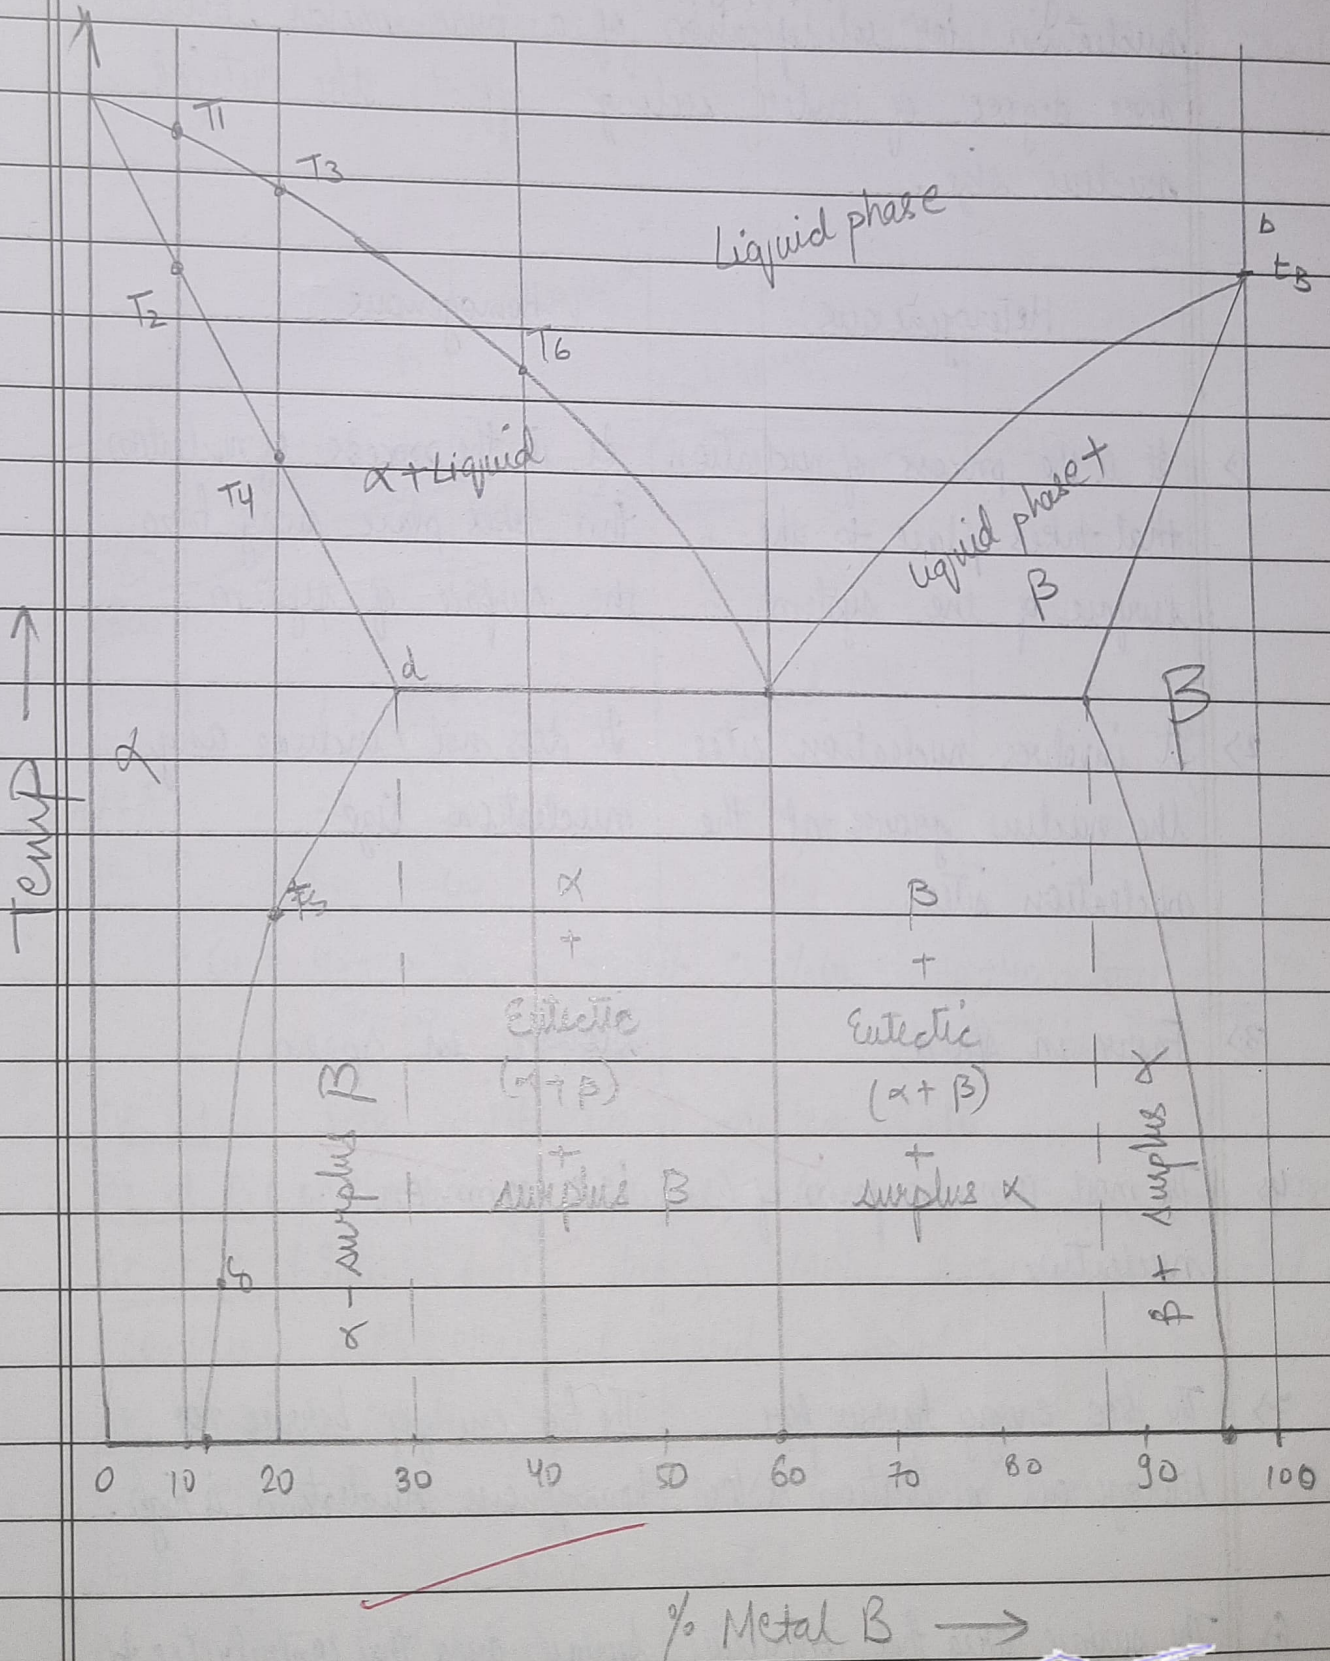 T1
T3
Liquid phase
b
tB
T2
T6
α+Liquid
T4
Liquid phase+
β
d
β
α
Temp
T5
α
+
Eutectic
(α+β)
+
surplus β
β
+
Eutectic
(α+β)
+
surplus α
α-surplus β
β+ surplus α
0 10 20 30 40 50 60 70 80 90 100
% Metal B →